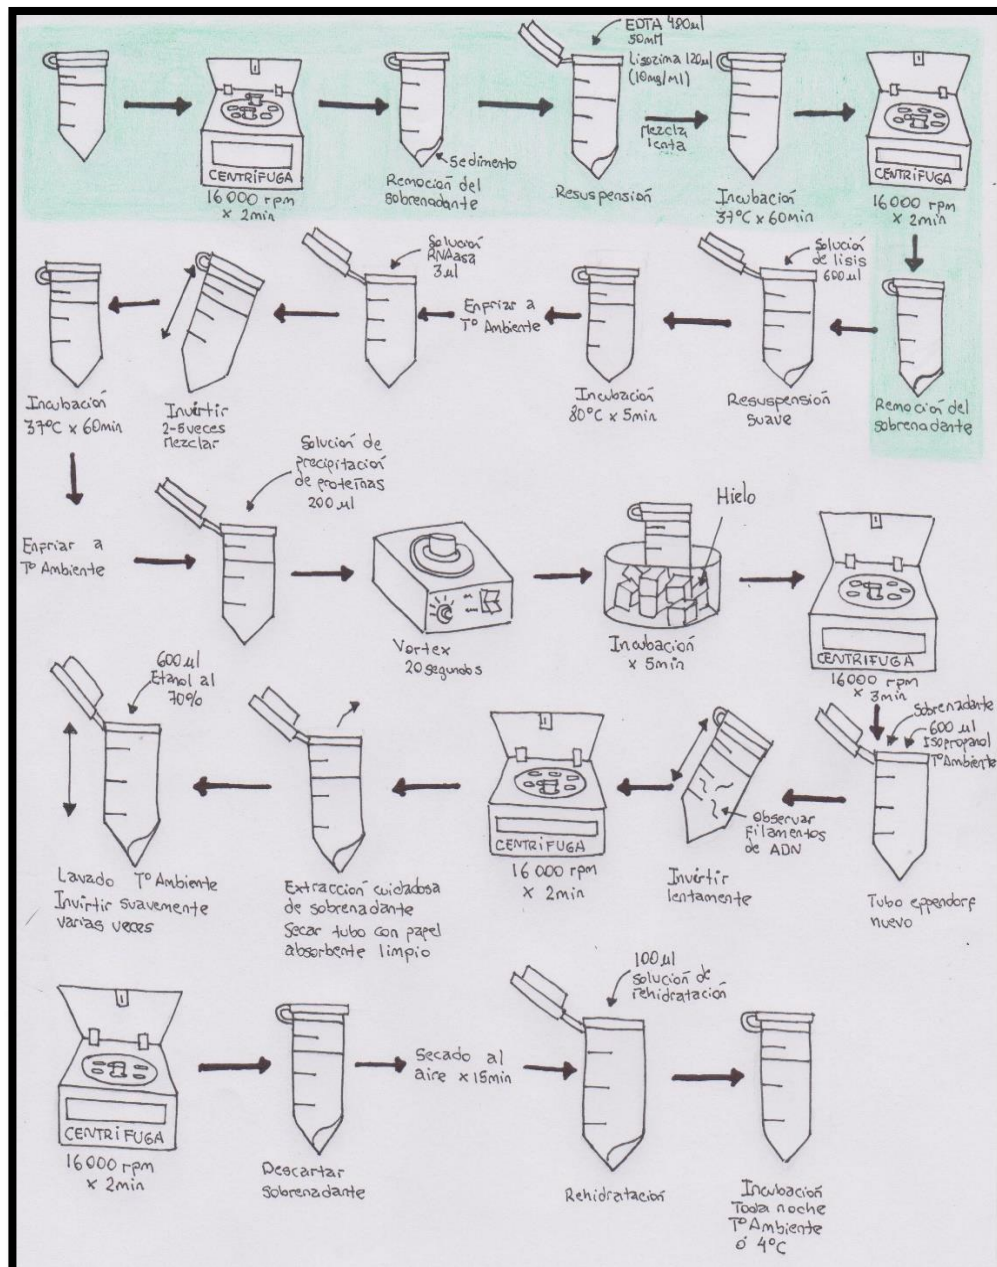 EDTA 480µl
50mM
Lisozima 120µl
(10mg/ml)
CENTRÍFUGA
16000 rpm
x 2min
Sedimento
Remoción del
sobrenadante
Resuspensión
Mezcla
lenta
Incubación
37°C x 60min
CENTRÍFUGA
16000 rpm
x 2min
Remoción del
sobrenadante
Solución
de lisis
600µl
Resuspensión
suave
Incubación
80°C x 5min
Enfriar a
T° Ambiente
Solución
RNAasa
3µl
Invertir
2-5 veces
Mezclar
Incubación
37°C x 60min
Enfriar a
T° Ambiente
Solución de
precipitación
de proteínas
200µl
Vortex
20 segundos
Hielo
Incubación
x 5min
CENTRÍFUGA
16000 rpm
x 3min
Sobrenadante
600µl
Isopropanol
T° Ambiente
Tubo eppendorf
nuevo
Observar
Filamentos
de ADN
Invertir
lentamente
CENTRÍFUGA
16000 rpm
x 2min
Extracción cuidadosa
de sobrenadante
Secar tubo con papel
absorbente limpio
600µl
Etanol al
70%
Lavado T° Ambiente
Invirtir suavemente
varias veces
CENTRÍFUGA
16000 rpm
x 2min
Descartar
sobrenadante
Secado al
aire x 15min
100µl
Solución de
rehidratación
Rehidratación
Incubación
Toda noche
T° Ambiente
ó 4°C